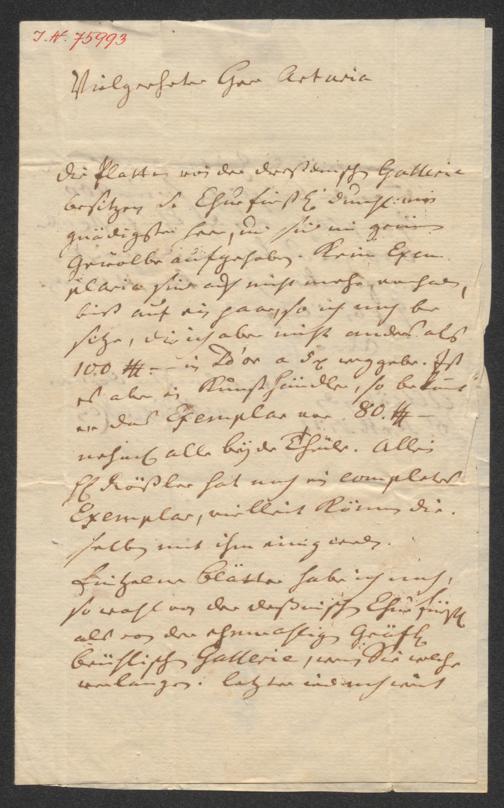 I.N. 75993
Vielgeehrter Herr Artaria
die Platten von der dreßdenisch Gallerie
besitzen Se Churfürstl durchl: mein
gnädigster Herr, und sind im grünen
Gewölbe aufgehoben. Kein Exem
plaria sind auch nicht mehr vorhanden,
biß auf ein paar, so ich noch be
sitze, die ich aber nicht anders als
100 – in Ld'or a 5 weggebe. Ist
es aber ein Kunsthändler, so bekommt
er das Exemplar vor 80 –
nehml. alle beyde Theile. Allein
H Rößler hat noch ein completes
Exemplar, vielleicht können die.
selben mit ihm einig werden.
Eintzelne Blätter habe ich noch,
so wohl von der dreßnisch Churfürstl
als von der ehmahligen Gräfl
brühlischen Gallerie, wenn Sie welche
verlangen. letztere sind noch